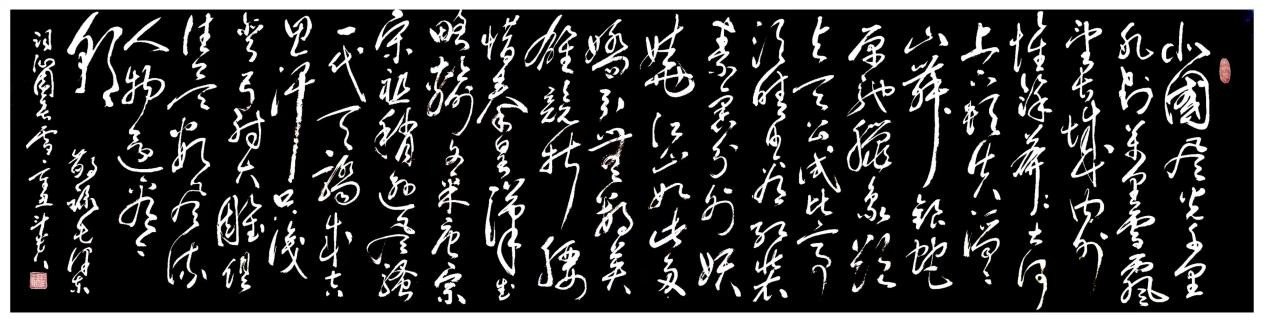 北國風光千里
冰封萬里雪飄
望長城內外
惟餘莽莽大河
上下頓失滔滔
山舞銀蛇
原馳蠟象欲
與天公試比高
須晴日看紅裝
素裹分外妖
嬈江山如此多
嬌引無數英
雄競折腰
惜秦皇漢武
略輸文采唐宗
宋祖稍遜風騷
一代天驕成吉
思汗只識
彎弓射大雕俱
往矣數風流
人物還看今
朝 敬錄毛澤東
詞沁園春雪